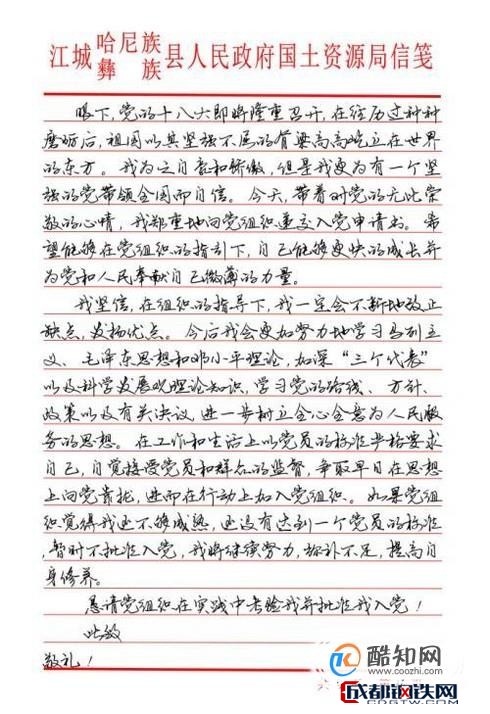 江城哈尼族彝族县人民政府国土资源局信笺
眼下,党的十八大即将隆重召开,在经历过种种
磨砺后,祖国以其坚强不屈的脊梁高高屹立在世界
的东方。我为之自豪和骄傲,但是我更为有一个坚
强的党带领全国而自信。今天,带着对党的无比崇
敬的心情,我郑重地向党组织递交入党申请书。希
望能够在党组织的指引下,自己能够更快的成长并
为党和人民奉献自己微薄的力量。
我坚信,在组织的指导下,我一定会不断地改正
缺点,发扬优点。今后我会更加努力地学习马列主
义、毛泽东思想和邓小平理论,加深“三个代表”
以及科学发展观理论知识,学习党的路线、方针、
政策以及有关决议,进一步树立全心全意为人民服
务的思想。在工作和生活上以党员的标准严格要求
自己,自觉接受党员和群众的监督,争取早日在思想
上向党靠拢,进而在行动上加入党组织。如果党组
织觉得我还不够成熟,还没有达到一个党员的标准,
暂时不批准入党,我将继续努力,弥补不足,提高自
身修养。
恳请党组织在实践中考验我并批准我入党!
此致
敬礼!
酷知网
www.coozhi.com
成都钢铁网